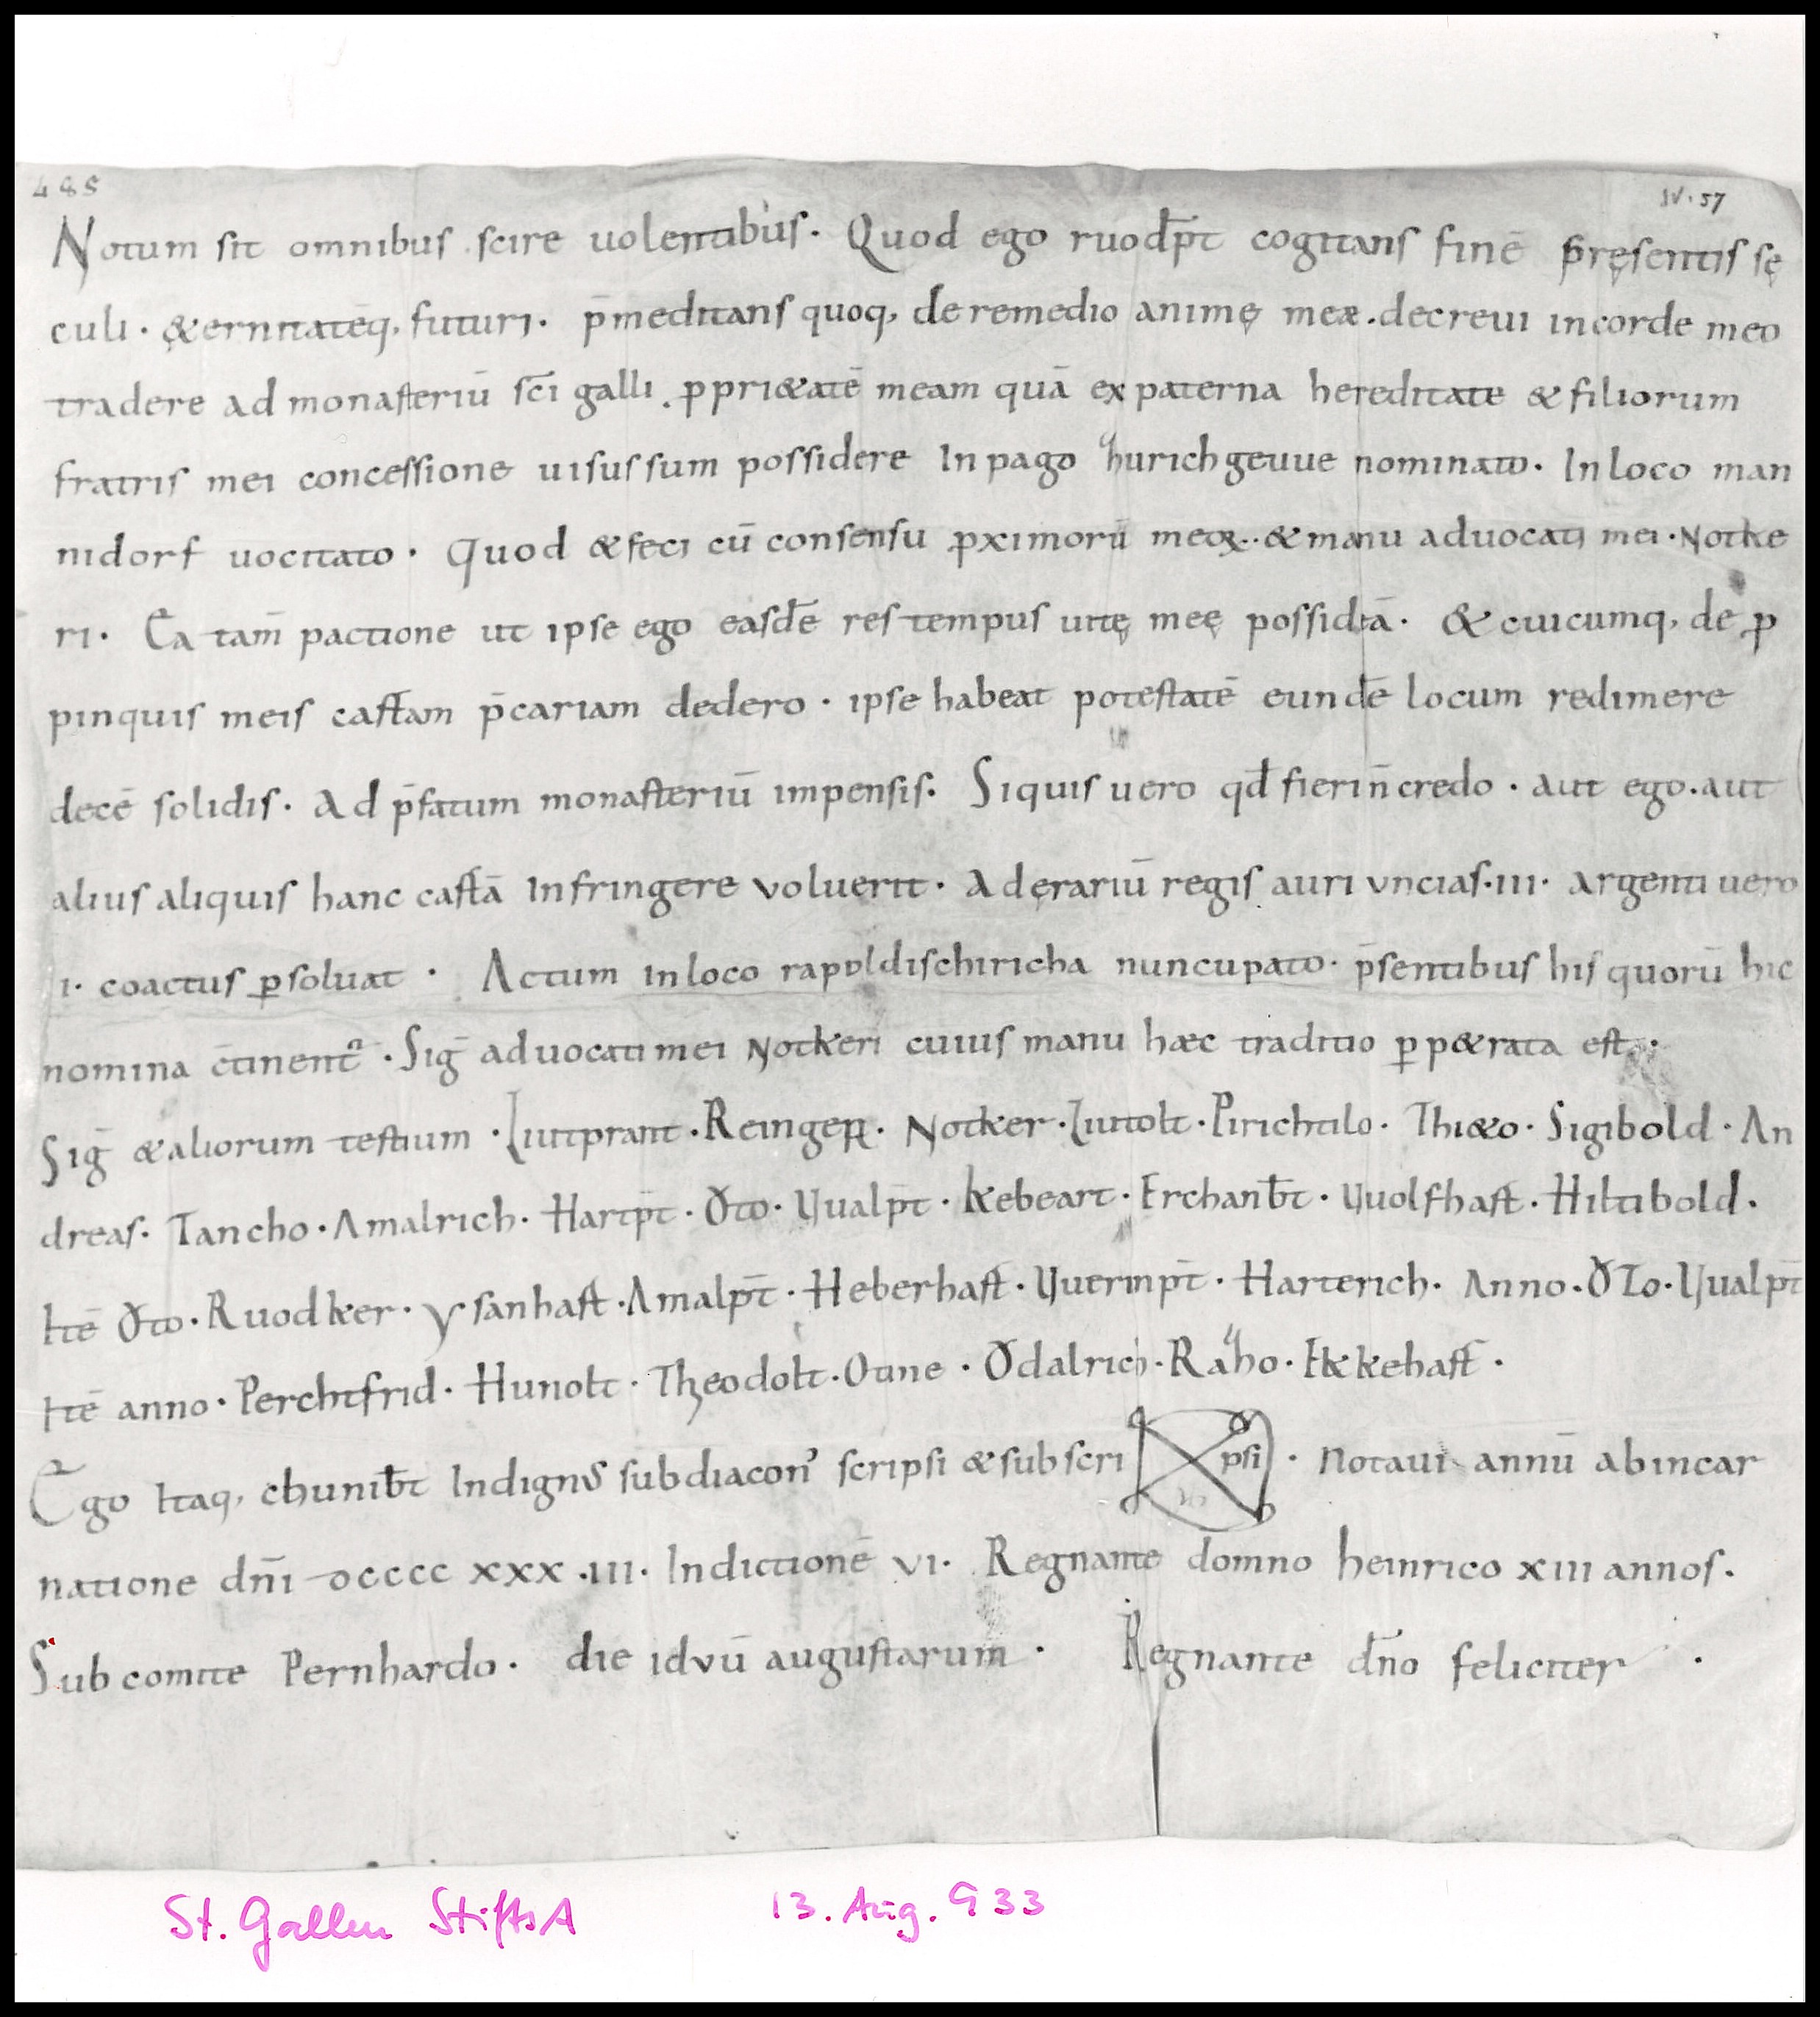 485
IV. 57
Notum sit omnibus scire uolentibus. Quod ego ruodp̄t cogitans finē p̄ręsentis sę
culi. &ernitatēq, futuri. p̄meditans quoq, de remedio animę meæ. decreui in corde meo
tradere ad monasteriū sc̄i galli. ꝓpri&atē meam quā ex paterna hereditate & filiorum
fratris mei concessione uisus sum possidere In pago hurichgeuue nominato. In loco man
nidorf uocitato. Quod & feci cū consensu ꝓximorū meoꝝ. & manu aduocati mei. Notke
ri. Ea tam̄ pactione ut ipse ego easdē res tempus uitę meę possidēā. & cuicumq, de ꝓ
pinquis meis castam p̄cariam dedero. ipse habeat potestatē eundē locum redimere
decē solidis. Ad p̄fatum monasteriū impensis. Siquis uero qd̄ fieri n̄ credo. aut ego. aut
alius aliquis hanc castā Infringere voluerit. Ad ęrariū regis auri vncias. III. argenti uero
I. coactus ꝑsoluat. Actum in loco rapoldischiricha nuncupato. p̄sentibus his quorū hic
nomina c̄tinent᷑. Siḡ aduocati mei Notkeri cuius manu hæc traditio ꝑp&rata est.
Siḡ & aliorum testium. Liutprant. Reinger. Notker. Liutolt. Pirichtilo. Thi&o. Sigibold. An
dreas. Tancho. Amalrich. Hartp̄t. Oͮto. Uualp̄t. Kebeart. Erchanb̄t. Uuolfhast. Hiltibold.
Itē Oͮto. Ruodker. Ysanhast. Amalp̄t. Heberhast. Uuerinp̄t. Harterich. Anno. OͮTo. Uualp̄t
Itē anno. Perchtfrid. Hunolt. Theodolt. Otine. Oͮdalrich. Raho. Ekkehast.
Ego Itaq, chunib̄t Indignus subdiacon᾽ scripsi & subscri psi. Notaui annū ab incar
natione dn̄i DCCCC XXX .III. Indictionē VI. Regnante domno heinrico XIII annos.
Sub comite Pernhardo. die iduū augustarum. Regnante dn̄o feliciter.
St. Gallen StiftsA 13. Aug. 933